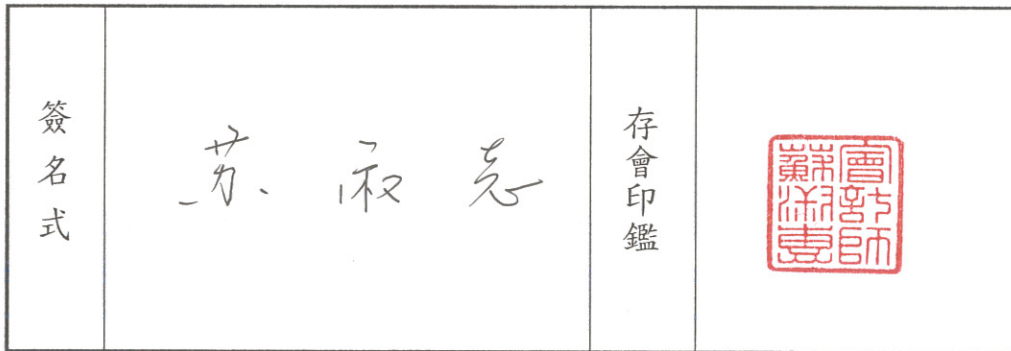 簽名式
苏淑惠
存會印鑑
會計師
蘇淑惠